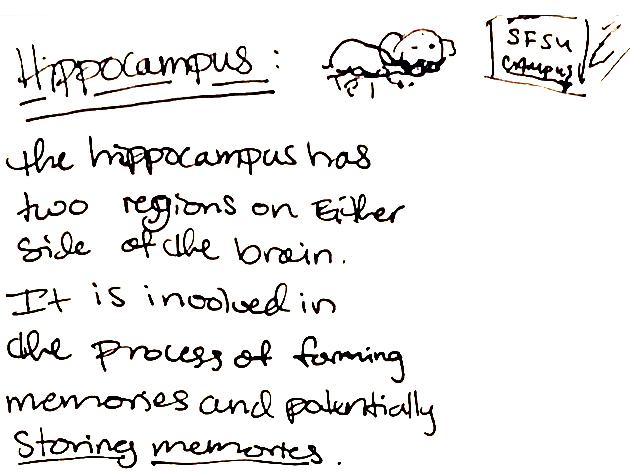 Hippocampus:
SFSU
campus
the hippocampus has
two regions on Either
side of the brain.
It is involved in
the process of forming
memories and potentially
Storing memories.